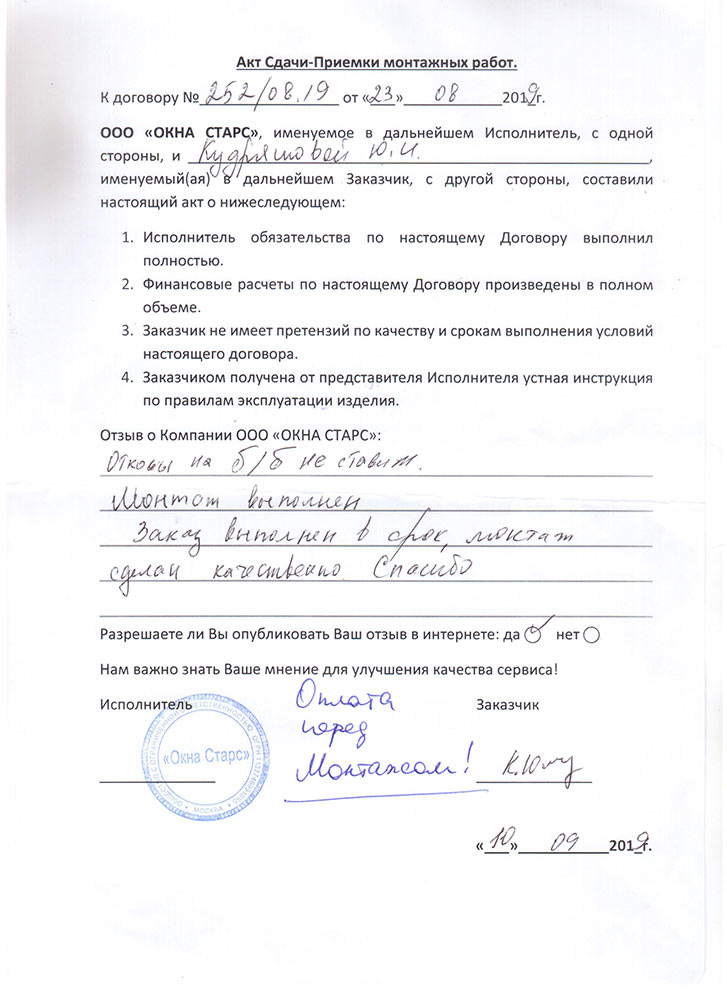 Акт Сдачи-Приемки монтажных работ.
К договору № 252/08.19 от «23» 08 2019г.
ООО «ОКНА СТАРС», именуемое в дальнейшем Исполнитель, с одной
стороны, и Кудряшовой Ю.И.,
именуемый(ая) в дальнейшем Заказчик, с другой стороны, составили
настоящий акт о нижеследующем:
1. Исполнитель обязательства по настоящему Договору выполнил
полностью.
2. Финансовые расчеты по настоящему Договору произведены в полном
объеме.
3. Заказчик не имеет претензий по качеству и срокам выполнения условий
настоящего договора.
4. Заказчиком получена от представителя Исполнителя устная инструкция
по правилам эксплуатации изделия.
Отзыв о Компании ООО «ОКНА СТАРС»:
на б/б не ставим.
Монтаж выполнен
Заказ выполнен в срок, монтаж
сделан качественно. Спасибо
Разрешаете ли Вы опубликовать Ваш отзыв в интернете: да нет
Нам важно знать Ваше мнение для улучшения качества сервиса!
Исполнитель
Заказчик
Оплата
перед
Монтажом!
«Окна Старс»
МОСКВА
«10» 09 2019г.